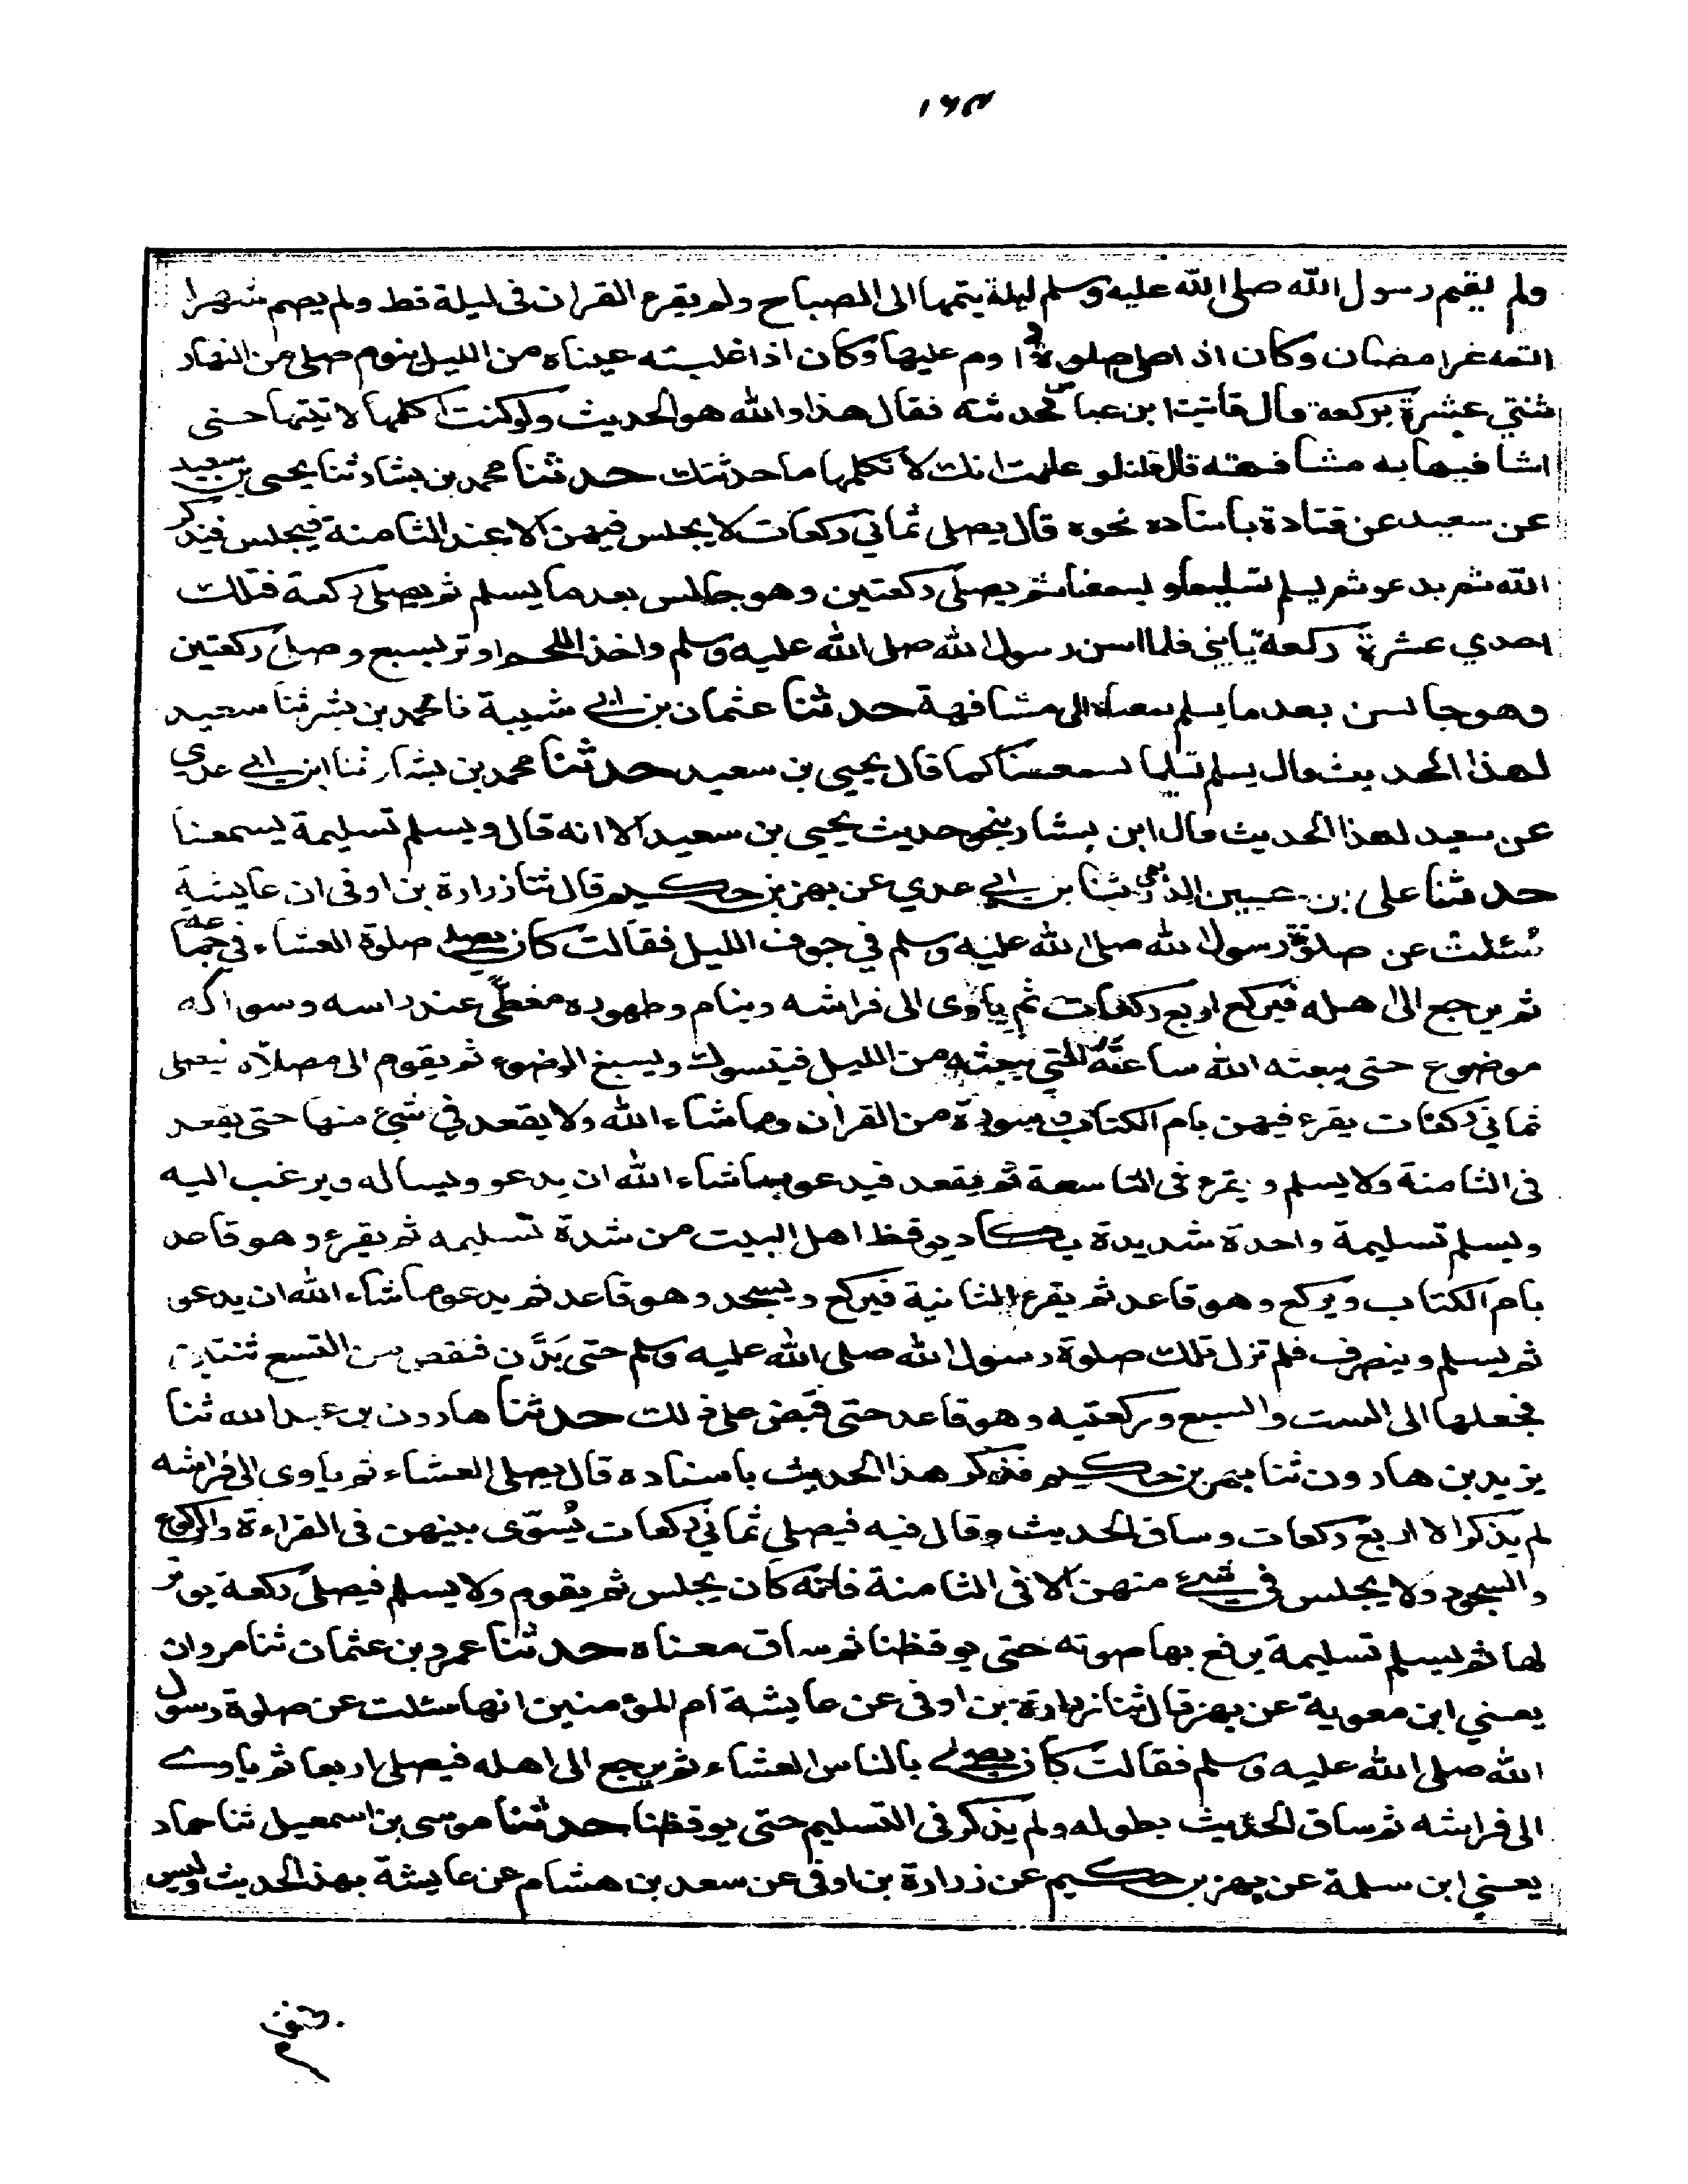 ولم يقم رسول الله صلى الله عليه وسلم ليلة يتمها الى الصباح ولم يقرء القران فى ليلة قط ولم يصم شهرا
اتمه غير رمضان وكان اذا صلى صلوة داوم عليها وكان اذا غلبته عيناه من الليل بنوم صلى من النهار
ثنتي عشرة ركعة قال فاتيت ابن عباس فحدثته فقال هذا والله هو الحديث ولو كنت اكلمها لاتيتها حتى
اشافهها به مشافهته قال قلت لو علمت انك لا تكلمها ما حدثتك حدثنا محمد بن بشار ثنا يحيى بن سعيد
عن سعيد عن قتادة باسناده نحوه قال يصلى ثماني ركعات لا يجلس فيهن الا عند الثامنة فيجلس فيذكر
الله ثم يدعو ثم يسلم تسليما يسمعنا ثم يصلى ركعتين وهو جالس بعد ما يسلم ثم يصلى ركعة فتلك
احدي عشرة ركعة يا بني فلما اسن رسول الله صلى الله عليه وسلم واخذ اللحم اوتر بسبع وصلى ركعتين
وهو جالس بعد ما يسلم بمعناه الى مشافهة حدثنا عثمان بن ابي شيبة نا محمد بن بشر ثنا سعيد
لهذا الحديث قال يسلم تسليما يسمعنا كما قال يحيى بن سعيد حدثنا محمد بن بشار ثنا ابن ابي عدي
عن سعيد لهذا الحديث قال ابن بشار بنحو حديث يحيى بن سعيد الا انه قال ويسلم تسليمة يسمعنا
حدثنا على بن حسين الدرهمى ثنا بن ابي عدي عن بهز بن حكيم قال ثنا زرارة بن اوفى ان عايشة
سُئلت عن صلوة رسول الله صلى الله عليه وسلم في جوف الليل فقالت كان يصلي صلوة العشاء في جماعة
ثم يرجع الى اهله فيركع اربع ركعات ثم ياوى الى فراشه وينام وطهوره مغطّى عند راسه وسواكه
موضوع حتى يبعثه الله ساعته التي يبعثه من الليل فيتسوك ويسبغ الوضوء ثم يقوم الى مصلاه فيصلى
ثماني ركعات يقرء فيهن بام الكتاب وسورة من القران وما شاء الله ولا يقعد في شئ منها حتى يقعد
فى الثامنة ولا يسلم ويقرء فى التاسعة ثم يقعد فيدعو بما شاء الله ان يدعو ويساله ويرغب اليه
ويسلم تسليمة واحدة شديدة يكاد يوقظ اهل البيت من شدة تسليمه ثم يقرء وهو قاعد
بام الكتاب ويركع وهو قاعد ثم يقرء الثانية فيركع ويسجد وهو قاعد ثم يدعو ما شاء الله ان يدعو
ثم يسلم وينصرف فلم تزل تلك صلوة رسول الله صلى الله عليه وسلم حتى بَدَّن فنقص من التسع ثنتين
فجعلها الى الست والسبع وركعتيه وهو قاعد حتى قبض على ذلك حدثنا هارون بن عبد الله ثنا
يزيد بن هارون ثنا بهز بن حكيم فذكر هذا الحديث باسناده قال يصلى العشاء ثم ياوى الى فراشه
لم يذكر الا اربع ركعات وساق الحديث وقال فيه فيصلى ثماني ركعات يُسوّى بينهن فى القراءة والركوع
والسجود ولا يجلس في شئ منهن الا فى الثامنة فانه كان يجلس ثم يقوم ولا يسلم فيصلى ركعة يوتر
لها ثم يسلم تسليمة يرفع بها صوته حتى يوقظنا ثم ساق معناه حدثنا عمرو بن عثمان ثنا مروان
يعني ابن معوية عن بهز قال ثنا زرارة بن اوفى عن عايشة ام المؤمنين انها سئلت عن صلوة رسول
الله صلى الله عليه وسلم فقالت كان يصلي بالناس العشاء ثم يرجع الى اهله فيصلى اربعا ثم ياوي
الى فراشه ثم ساق الحديث بطوله ولم يذكر فى التسليم حتى يوقظنا حدثنا موسى بن اسمعيل ثنا حماد
يعني ابن سلمة عن بهز بن حكيم عن زرارة بن اوفى عن سعد بن هشام عن عايشة بهذا الحديث وليس